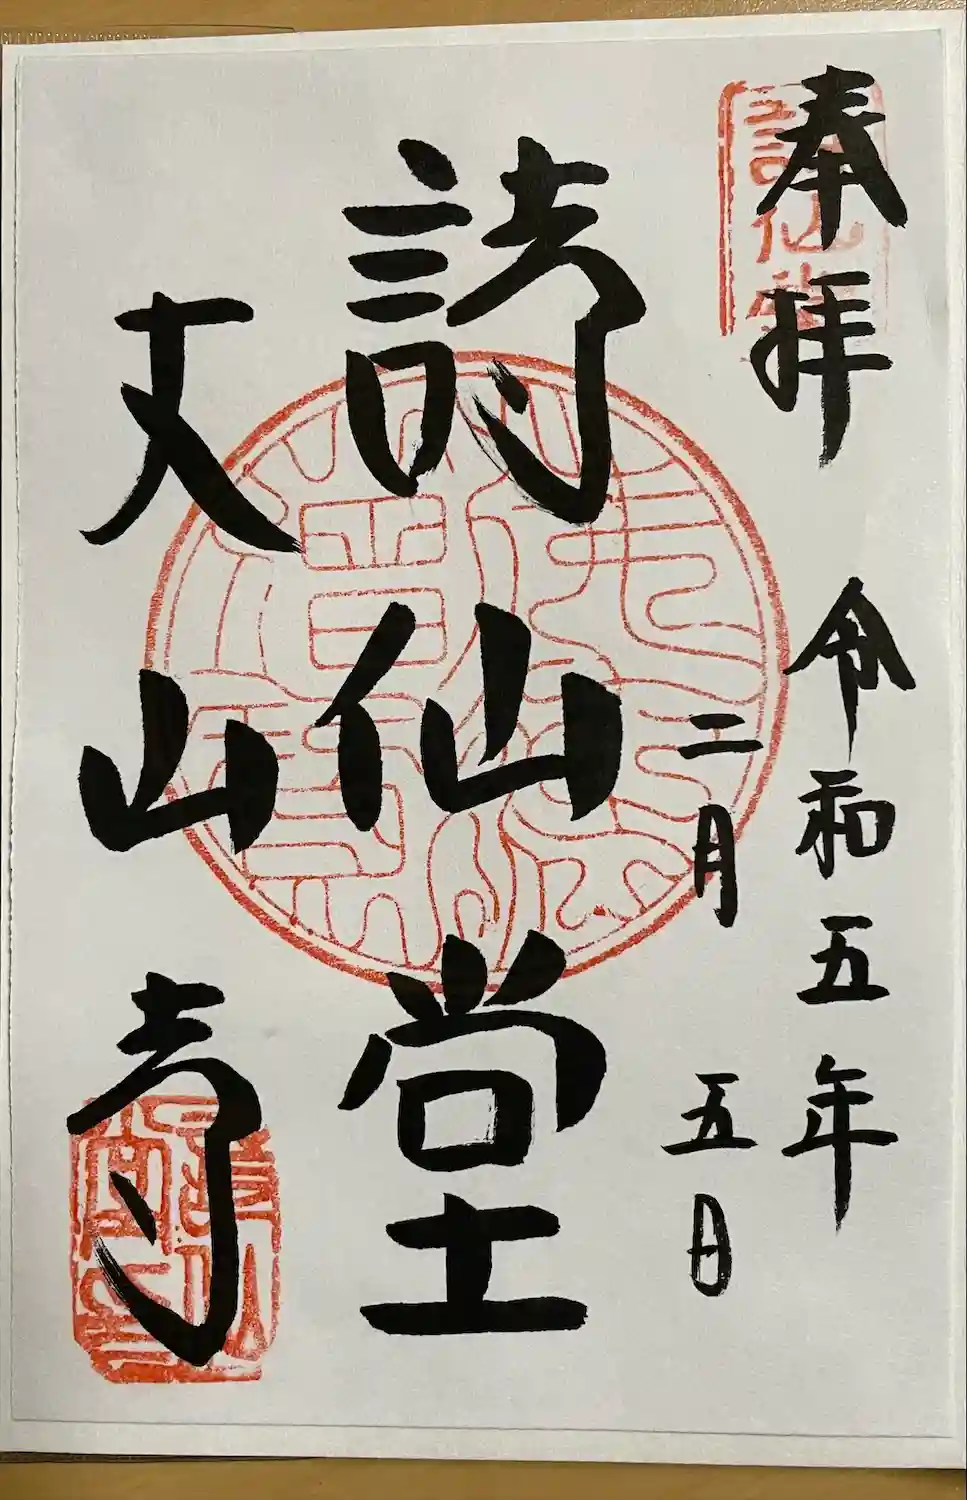 奉拝
令和五年
二月五日
詩仙堂
丈山寺
詩仙堂